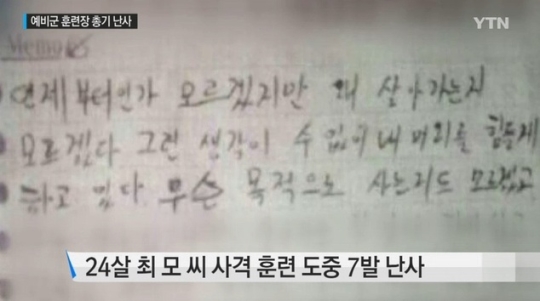 예비군 훈련장 총기 난사
YTN
Memo
언제부터인가 모르겠지만 왜 살아가는지
모르겠다 그런 생각이 수없이 내 머리를 힘들게
하고 있다 무슨 목적으로 사는지도 모르겠고
24살 최 모 씨 사격 훈련 도중 7발 난사